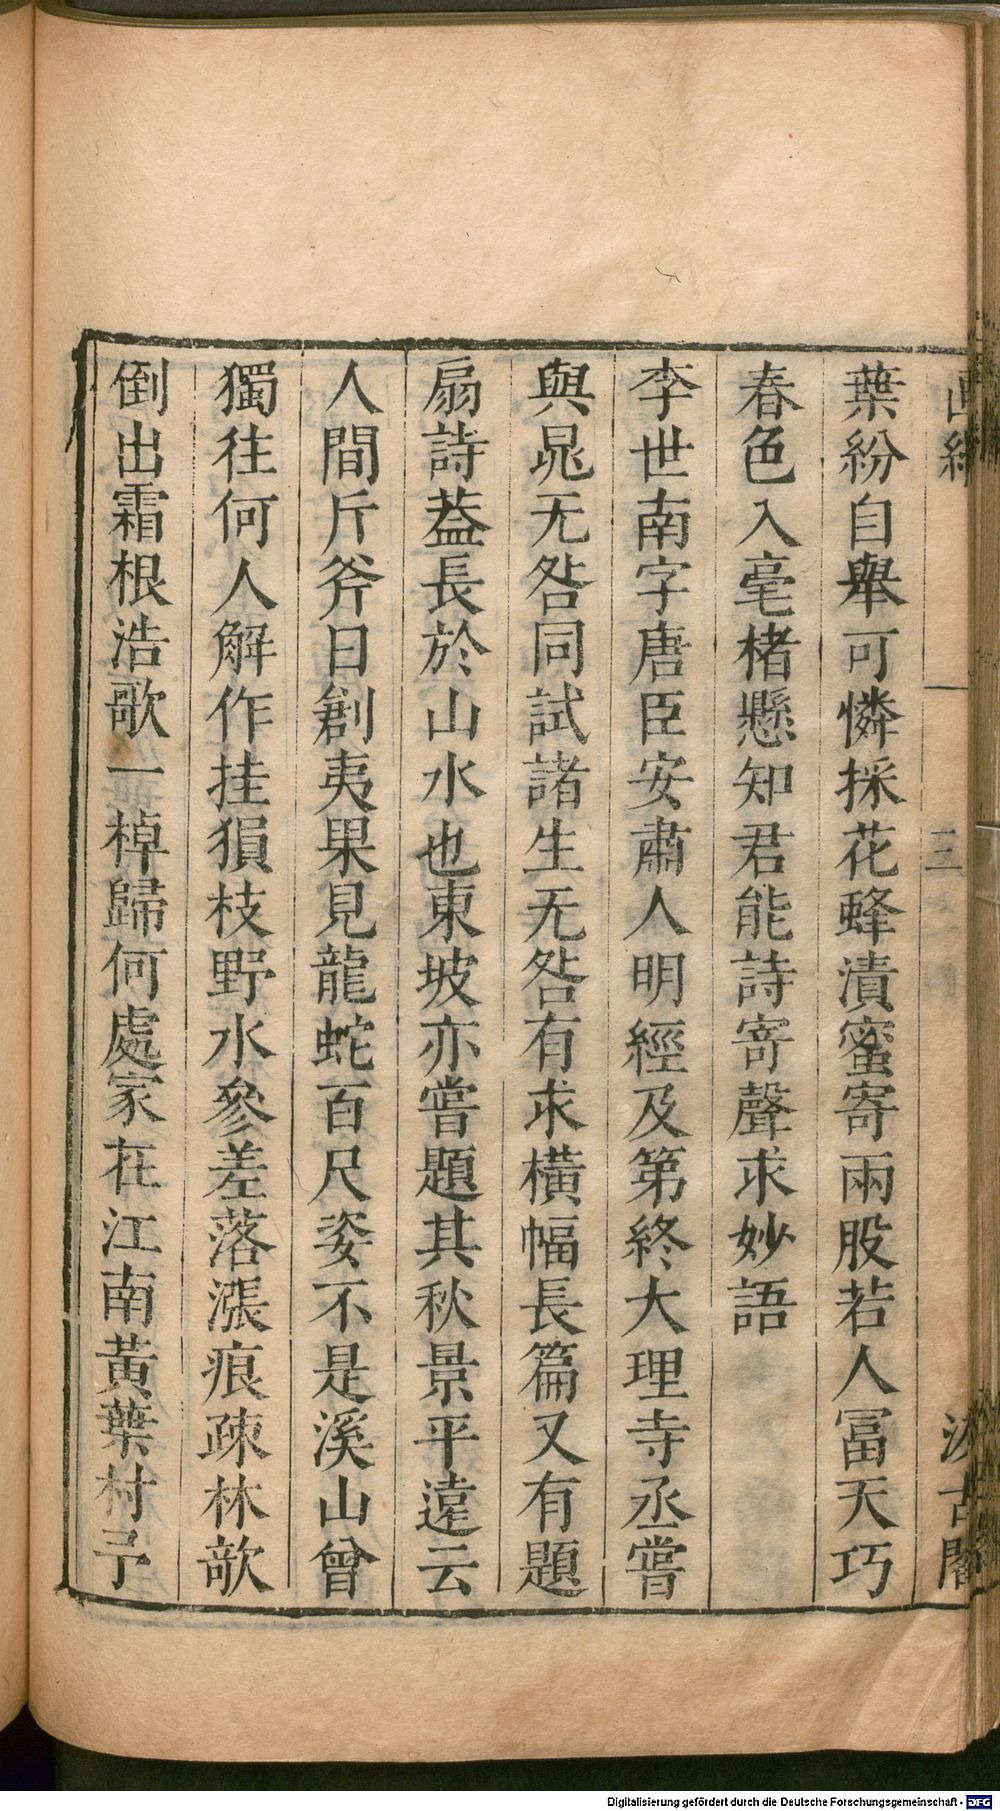 葉紛自舉可憐採花蜂漬蜜寄兩股若人冨天巧
春色入毫楮懸知君能詩寄聲求妙語
李世南字唐臣安肅人明經及第終大理寺丞嘗
與晁无咎同試諸生无咎有求橫幅長篇又有題
扇詩葢長於山水也東坡亦嘗題其秋景平遠云
人間斤斧日創夷果見龍蛇百尺姿不是溪山曾
獨往何人解作挂猨枝野水參差落漲痕疎林欹
倒出霜根浩歌一棹歸何處家在江南黃葉村予
三
汲古閣
Digitalisierung gefördert durch die Deutsche Forschungsgemeinschaft - DFG